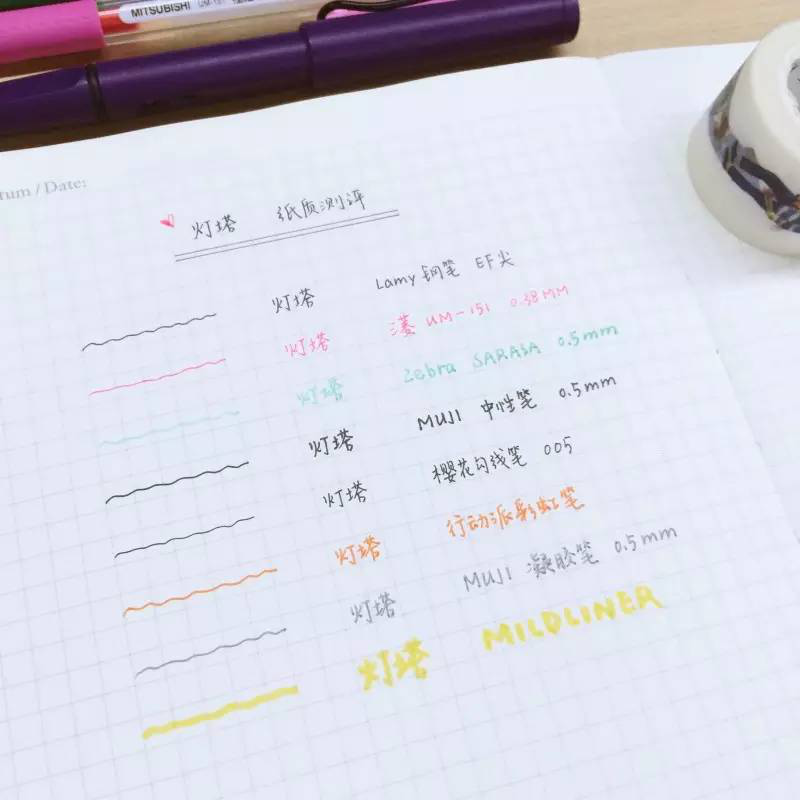 MITSUBISHI UM-151
tum / Date:
灯塔 纸质测评
灯塔 Lamy 钢笔 EF尖
灯塔 三菱 UM-151 0.38MM
灯塔 Zebra SARASA 0.5mm
灯塔 MUJI 中性笔 0.5mm
灯塔 樱花勾线笔 005
灯塔 行动派彩虹笔
灯塔 MUJI 凝胶笔 0.5mm
灯塔 MILDLINER